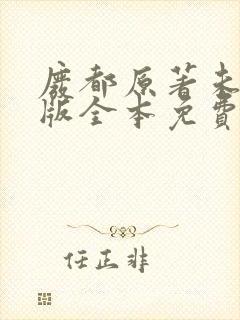 废都原著未
版全本免費
任正非